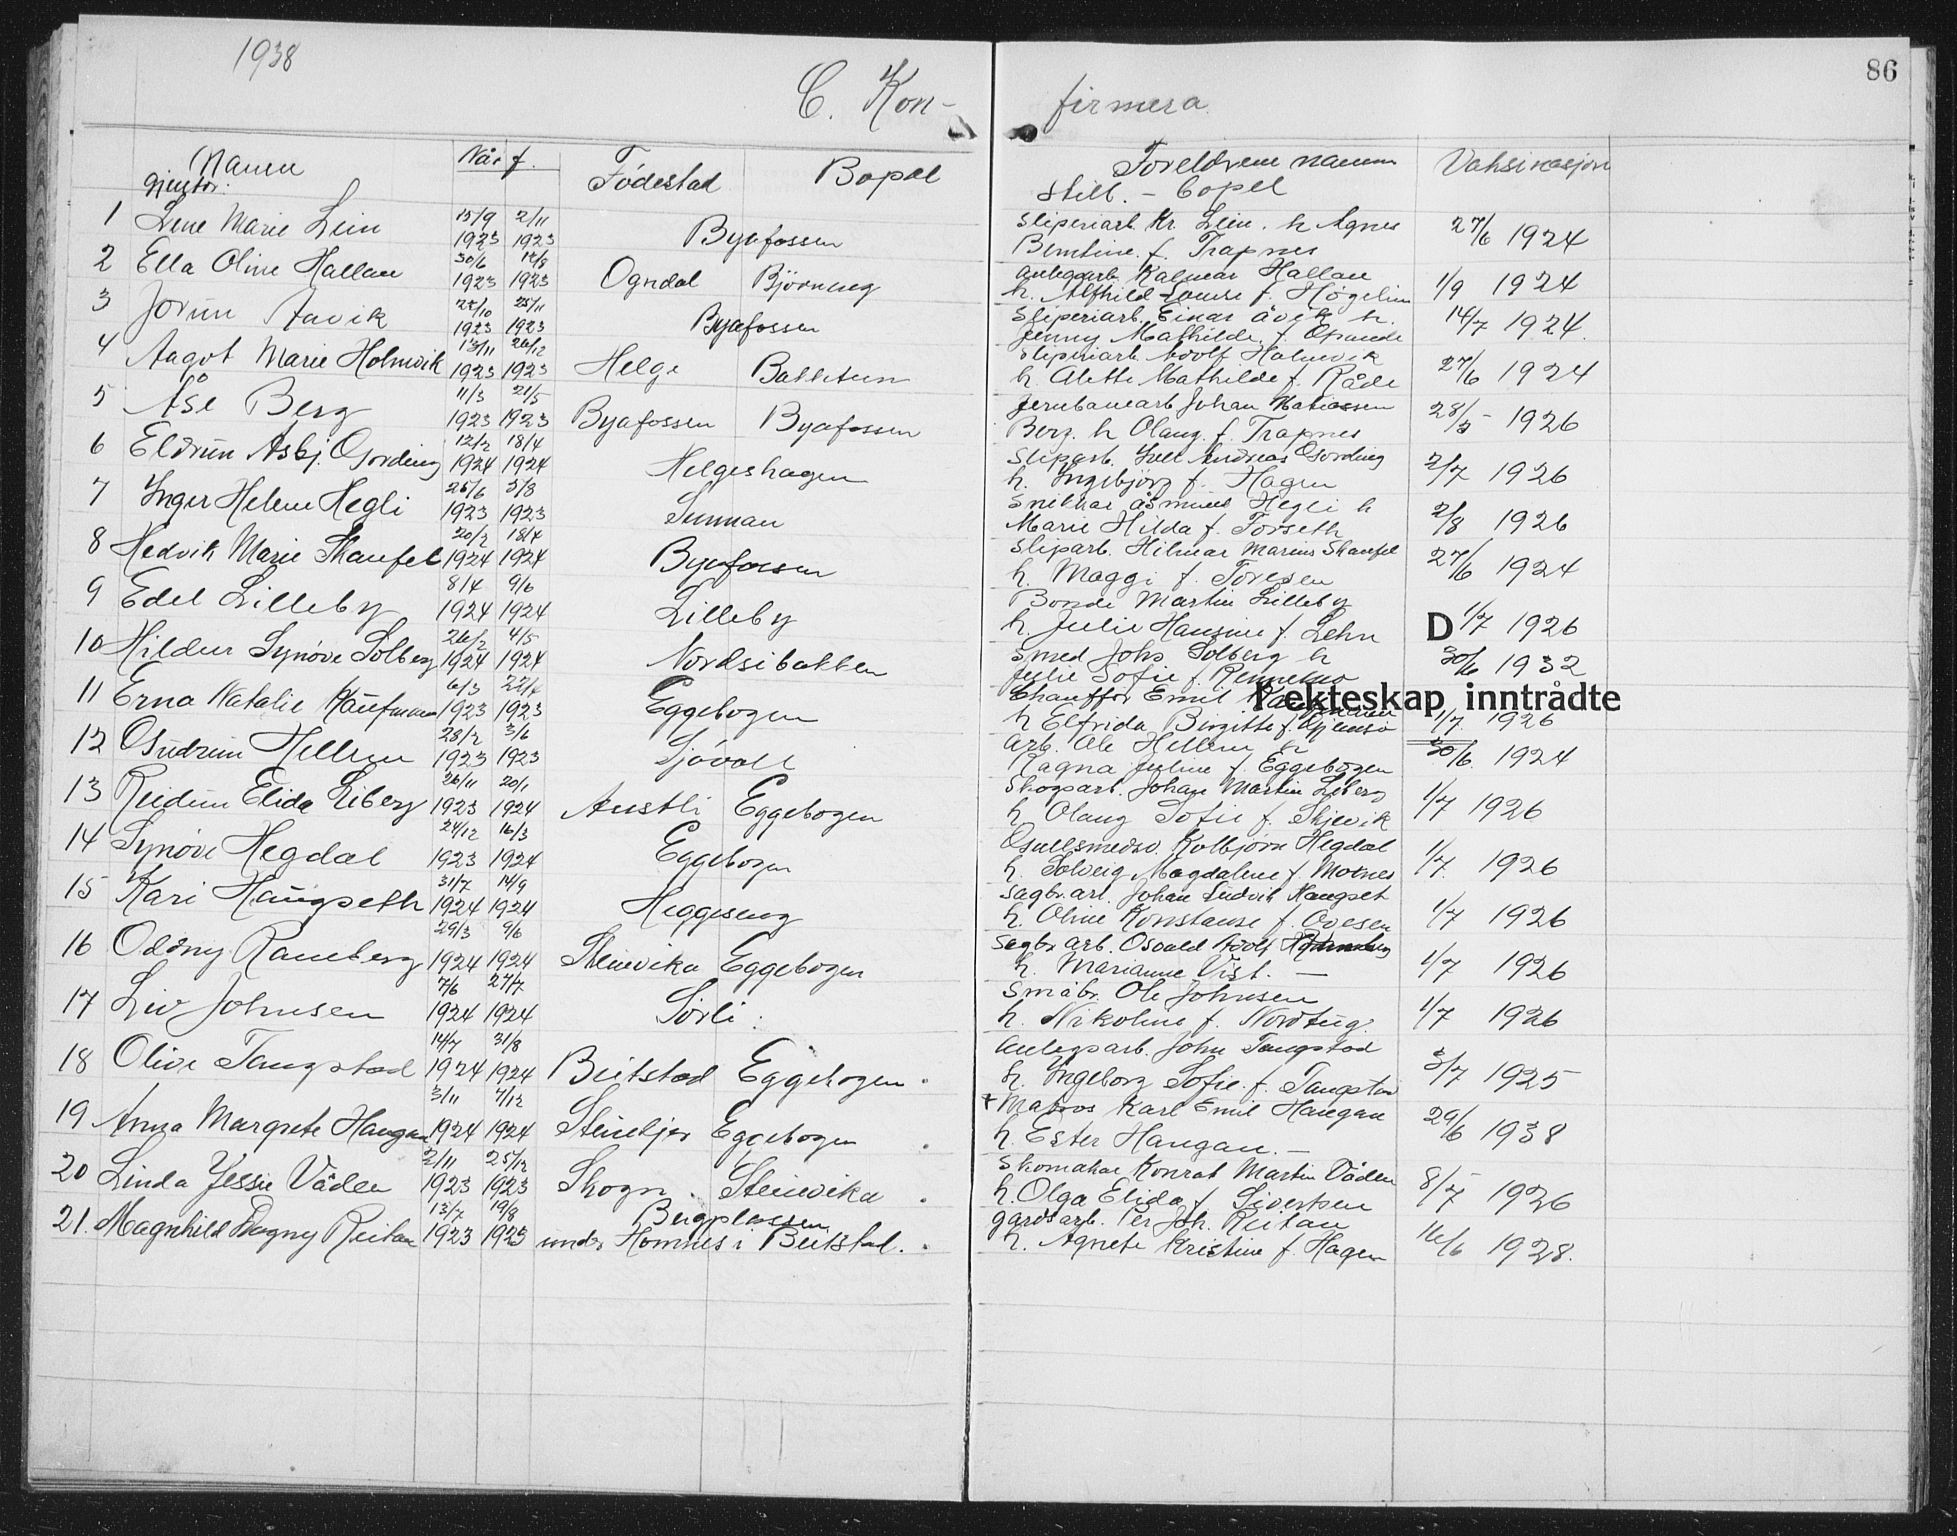 1938
86
C. Kon-
firmera
Namn
Når f.
Födestad
Bopel
Foreldrene namn
Vaksinasjon
Gjentor:
Still. - bopel
1 Lene Marie Lein 15/9 1923 2/11 1923 Byafossen
Sliperiarb. Kr. Lein. h Agnes
Berntine f. Trapnes 27/6 1924
2 Ella Oline Hallan 30/6 1923 12/8 1923 Ogndal Björneng
anlegsarb. Kalmar Hallan
h. Alfhild Louise f. Högelin 1/9 1924
3 Jorun Aavik 22/10 1923 25/11 1923 Byafossen
Sliperiarb. Einar Åvik h.
Jenny Mathilde f. Opande 14/7 1924.
4 Aagot Marie Holmvik 13/11 1923 26/12 1923 Helge Bakkeum
Sliperiarb. Adolf Holmvik
h. Alette Mathilde f. Råde 27/6 1924
5 Åse Berg 11/3 1923 21/5 1923 Byafossen Byafossen
Jernbanearb Johan Matiassen
Berg. h Olaug f. Trapnes 28/5 1926
6 Eldrun Asbj. Gsording 12/2 1924 18/4 1924 Helgeshagen
Sliparb. Andreas Gsording
h. Ingebjörg f. Hagen 2/7 1926
7 Inger Helene Hegli 26/6 1923 5/8 1923 Sunnan
Snikkar Åsmund Hegli h
Marie Hilda f. Forseth 2/8 1926
8 Hedvik Marie Skaufel 20/2 1924 18/4 1924 Byafossen
Sliparb. Hilmar Marius Skaufel
h. Maggi f. Toresen 27/6 1924
9 Edel Lilleby 8/4 1924 9/6 1924 Lilleby
Bonde Martin Lilleby
h. Julie Hansine f. Lehn D 1/7 1926
10 Hildur Synöve Solberg 26/2 1924 4/5 1924 Nordsibakken
Smed Johs Solberg h
Julie Sofie f. Rennemo 30/6 1932
I ekteskap inntrådte
11 Erna Natalie Kaufmann 6/3 1923 22/4 1923 Eggebogen
Chaufför Emil
h Elfrida Birgitte f. 1/7. 1926
12 Gudrun Hellem 28/2 1923 3/6 1923 Sjövoll
Arb. Ole Hellem h
Ragna Juline f. Eggebogen 30/6 1924
13 Reidun Elida Liberg 26/11 1923 20/1 1924 Austli Eggebogen
Skogsarb. Johan Martin Liberg
h Olaug Sofie f. Skjevik 1/7 1926
14 Synöve Hegdal 24/12 1923 16/3 1924 Eggebogen
Gullsmedsv. Kolbjörn Hegdal
h. Solveig Magdalene f. Moenes 1/7. 1926
15 Kari Haugseth 31/7 1924 14/9 1924 Heggeseng
Sagbr.arb. Johan Ludvik Haugset
h. Oline Konstanse f. Ovesen 1/7 1926
16 Oddny Ramberg 29/3 1924 9/6 1924 Steinvika Eggebogen
Sagbr. arb. Osvald Adolf Ramberg
h. Marianne Vist. — 1/7 1926
17 Liv Johnsen 7/6 1924 27/7 1924 Sörli.
Småbr. Ole Johnsen
h. Nikoline f. Nordtug. 1/7 1926
18 Olive Tangstad 14/7 1924 31/8 1924 Beitstad Eggebogen.
Anlegsarb. John Tangstad
h. Ingeborg Sofie. f. Tangstad 3/7 1925
19 Anna Margrete Haugan 3/11 1924 7/12 1924 Steinkjer Eggebogen
+ Matros Karl Emil Haugan
h. Ester Haugan. — 29/6 1938
20 Linda Jessie Våden 2/11 1923 25/12 1923 Skogn. Steinvika.
Skomakar Konrat Martin Vådan
h. Olga Elida f. Sivertsen 8/5 1926
21. Magnhild Dagny Reitan 13/7 1923 19/8 1923 Bergplassen under Homnes i Beitstad.
gardsarb. Per Joh. Reitan
h. Agnete Kristine f. Hagen 16/6 1928.